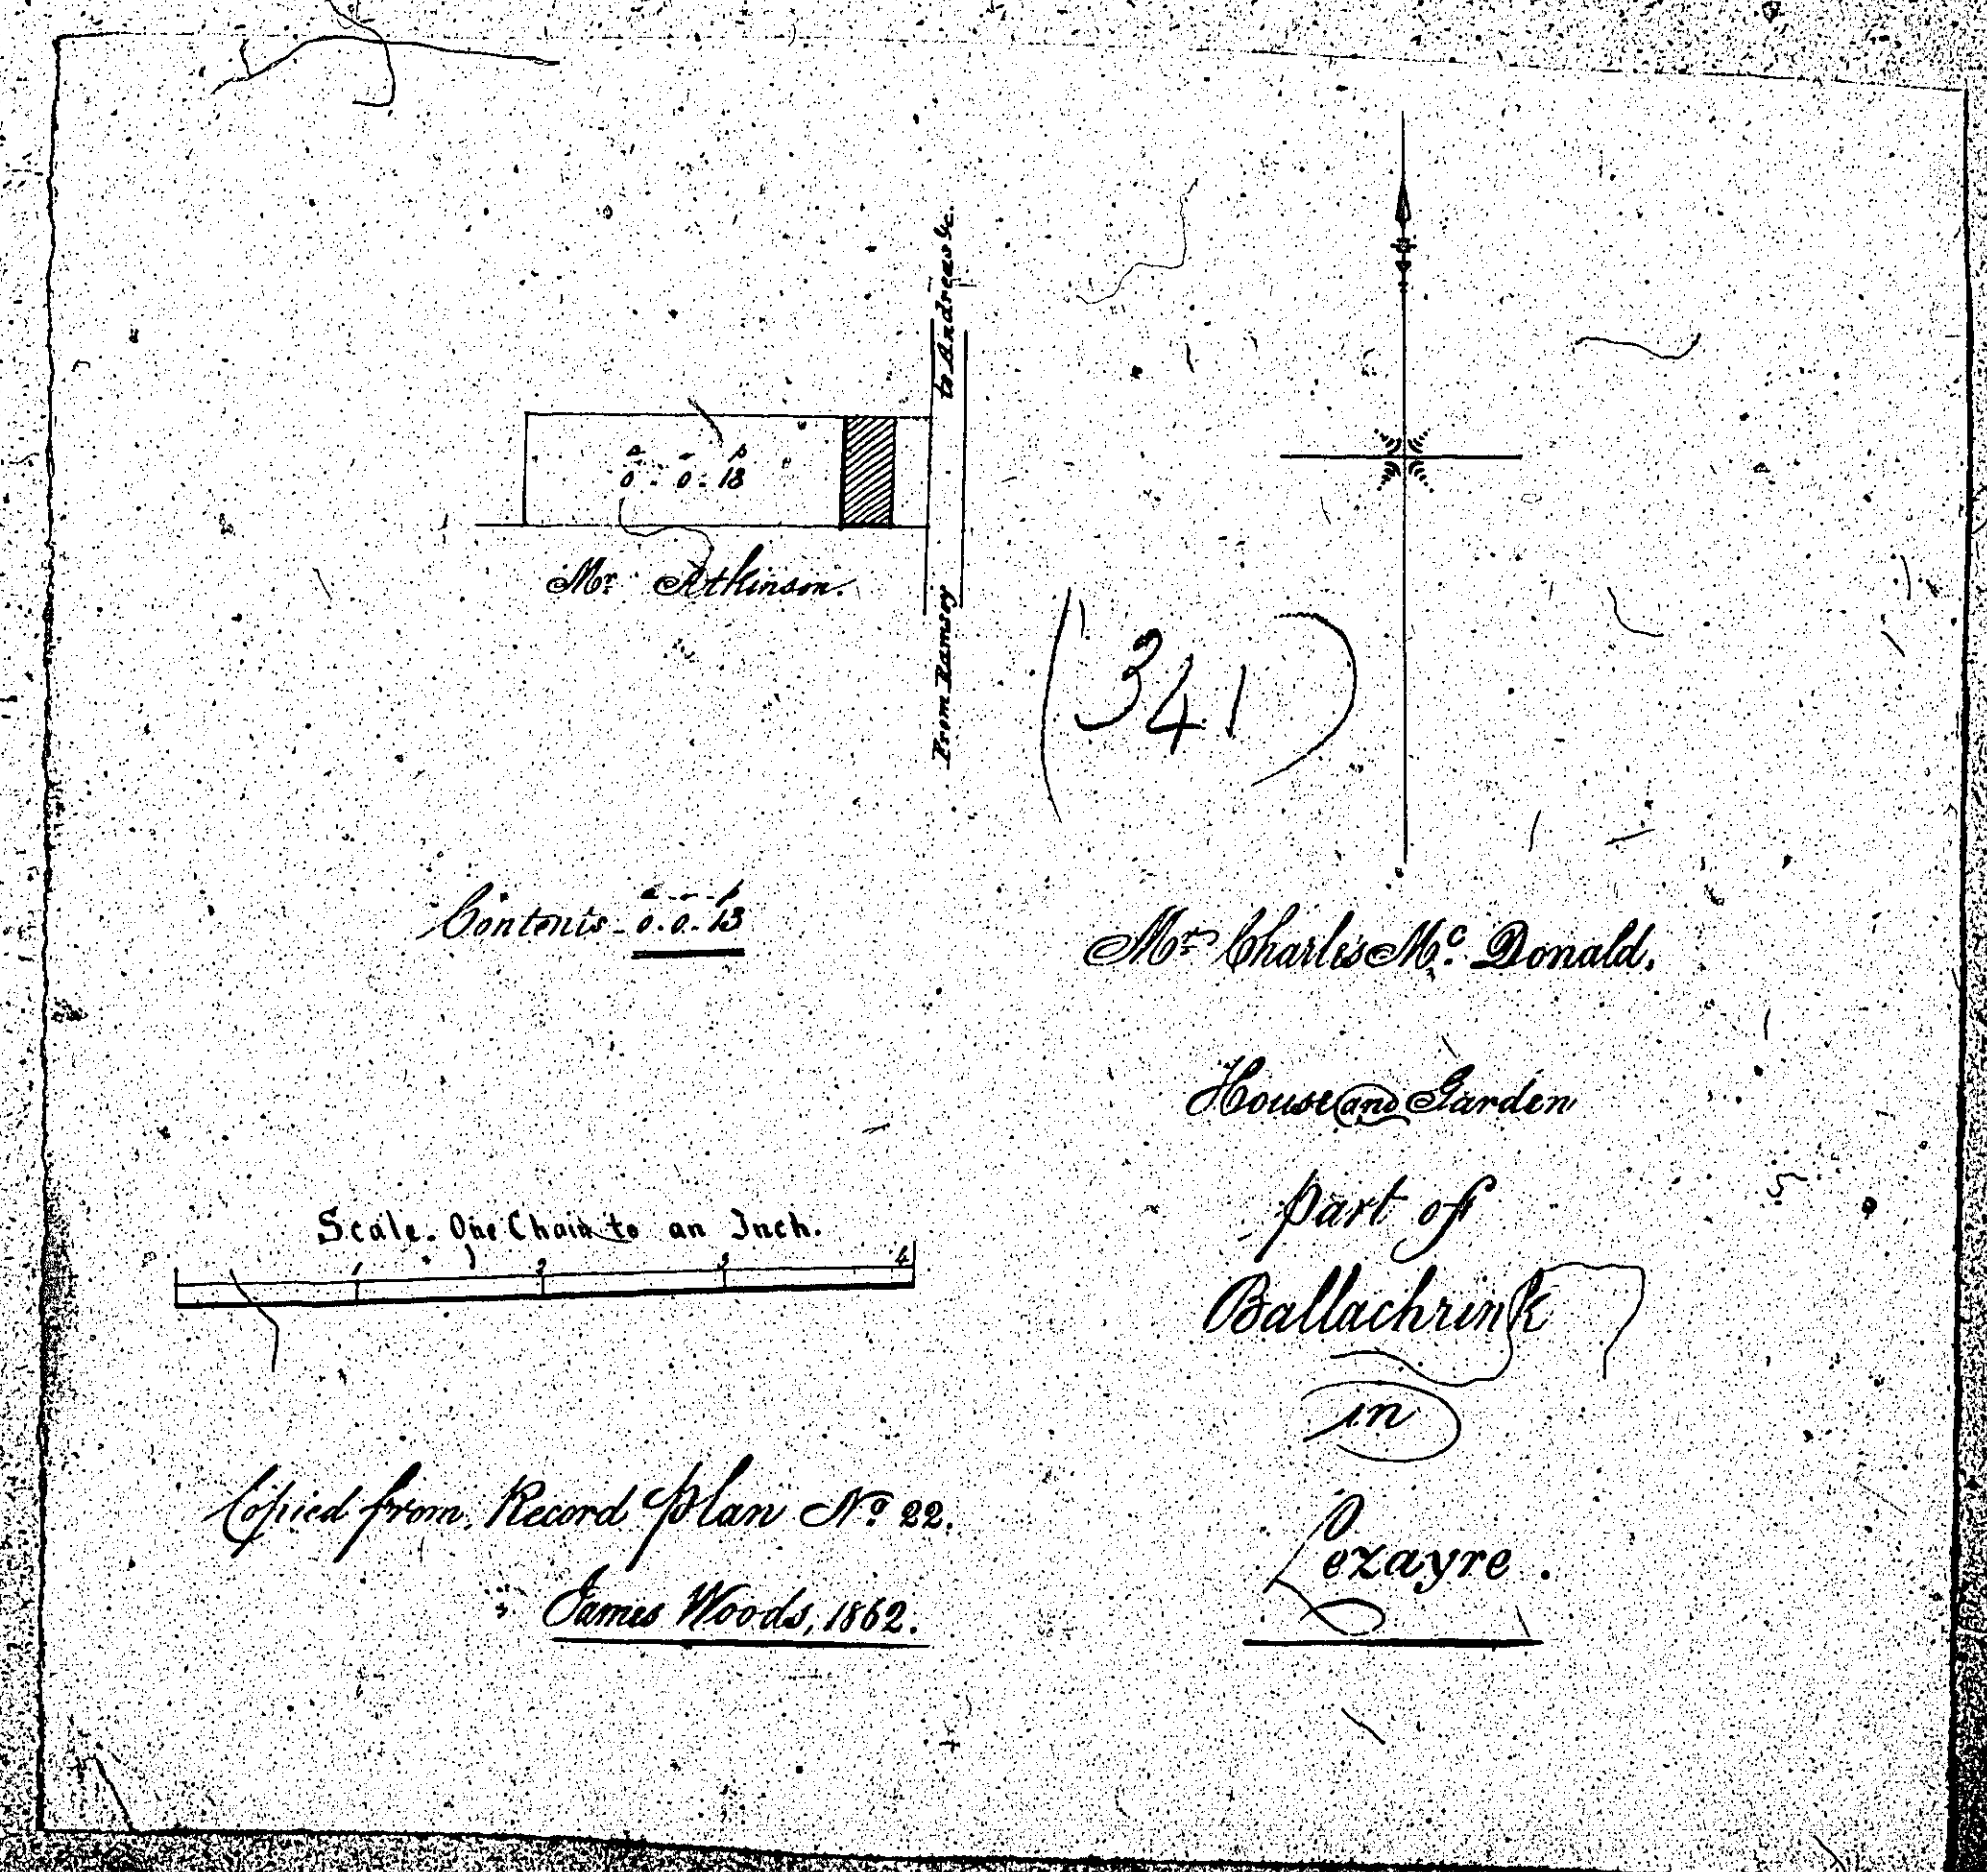 to Andreas &c.
a - r - p
0 - 0 - 13
Mr. Atkinson.
From Ramsey
(341)
Contents - a - r - p
0 . 0 . 13
Mr. Charles Mc. Donald.
House and Garden
part of
Ballachrink
in
Lezayre.
Scale. One Chain to an Inch.
1 2 3 4
Copied from Record plan No. 22.
James Woods, 1862.